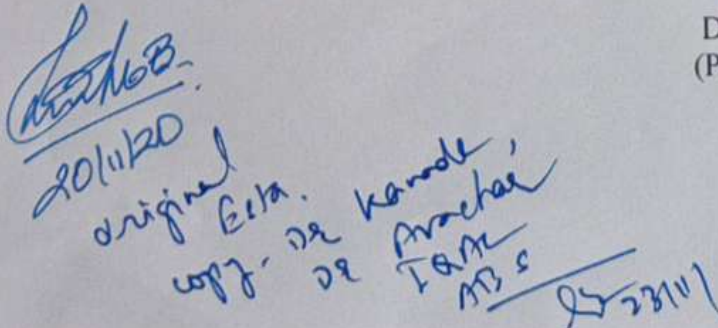 D
(P
20/11/20
original
Esta.
copy. Dr Kanade,
Dr Avachar
IQAC
ABS
23/11/